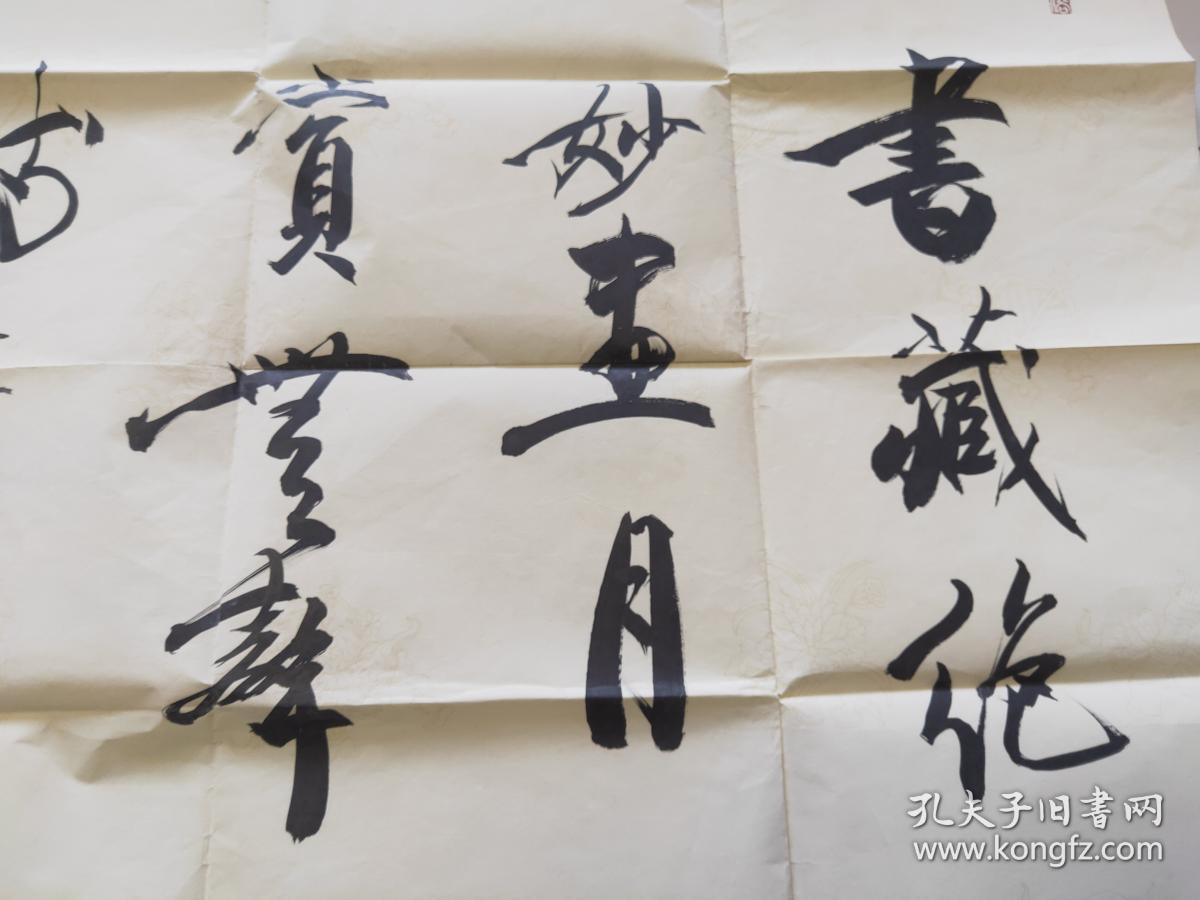 書藏絶
妙畫月
賞無
孔夫子旧书网
www.kongfz.com